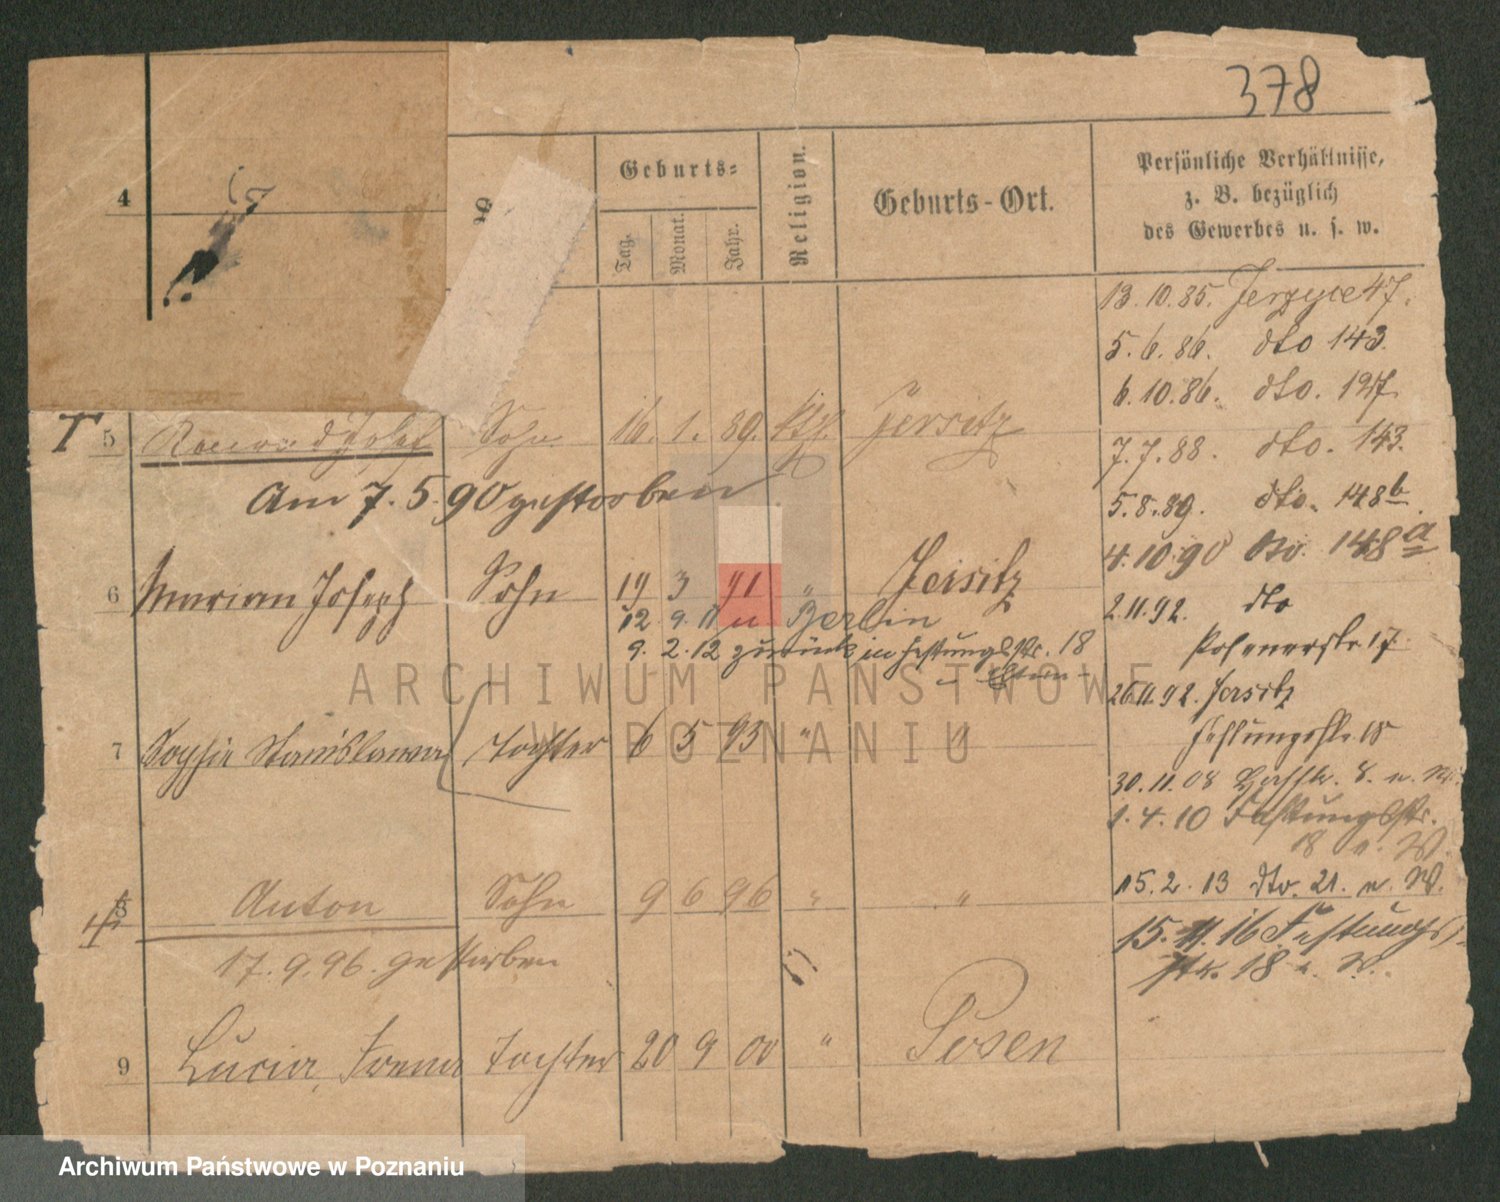 378
4
Geburts-
Tag.
Monat.
Jahr.
Religion.
Geburts-Ort.
Persönliche Verhältnisse,
z. B. bezüglich
des Gewerbes u. s. w.
13.10.85. Jerzyce 47.
5.6.86. dto 143.
6.10.86. dto. 127.
7.7.88. dto. 143.
5.8.89. dto. 148b
4.10.90 dto. 148a
2.11.92. dto
Posenerstr 17
26.11.92. Jersitz
Festungsstr. 18
30.11.08 8. u. W.
1.4.10 Festungsstr.
18 u. W.
15.2.13 dto. 21. u. W.
15.11.16 Festungs-
str. 18 u. W.
T 5 Konrad Josef Sohn 16. 1. 89. kth. Jersitz
Am 7.5.90 gestorben
6 Marian Joseph Sohn 19 3 91 " Jersitz
12 9 11 n Berlin
9. 2. 12 zurück in Festungsstr. 18
7 Sophie Stanislawa Tochter 6 5 93 " "
8 Anton Sohn 9 6 96 " "
17.9.96. gestorben
9 Lucia, Irena Tochter 20 9 00 " Posen
ARCHIWUM PAŃSTWOWE
W POZNANIU
Archiwum Państwowe w Poznaniu